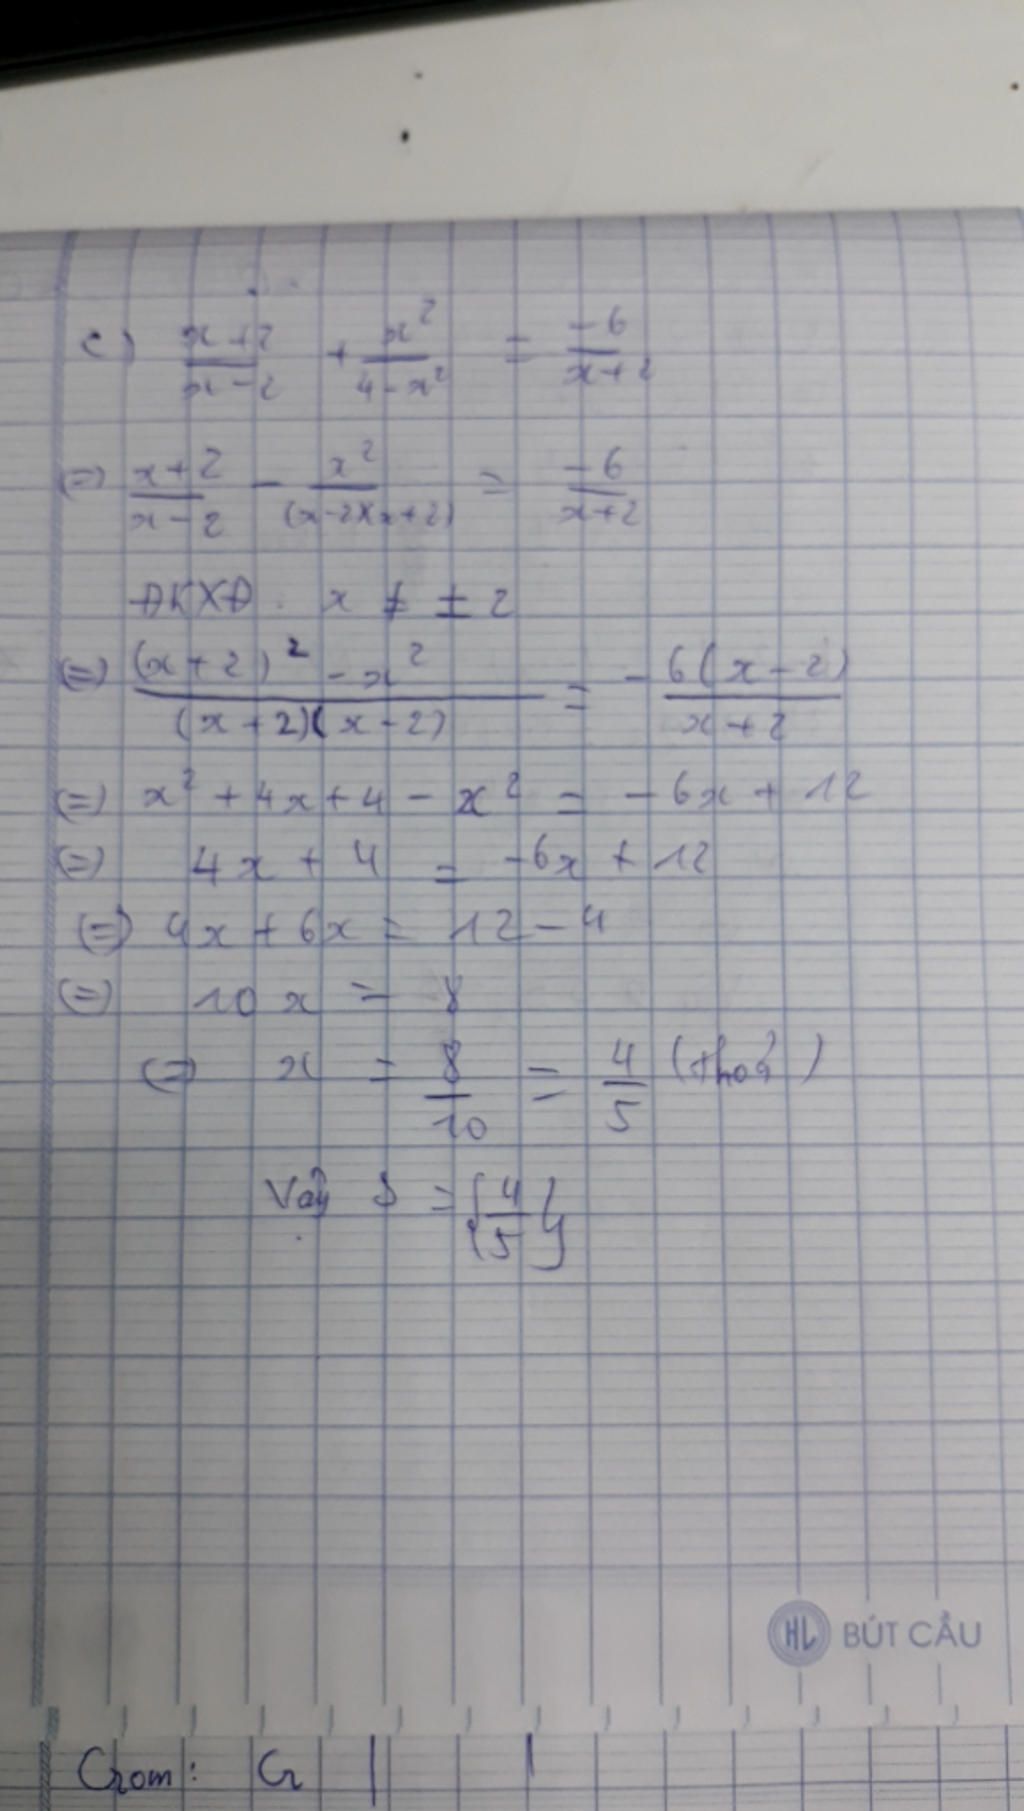 c) (x+2)/(x-2) + x²/(4-x²) = -6/(x+2)
(=) (x+2)/(x-2) - x²/((x-2)(x+2)) = -6/(x+2)
ĐKXĐ : x ≠ ± 2
(=) ((x+2)² - x²)/((x+2)(x-2)) = - 6(x-2)/(x+2)
(=) x² + 4x + 4 - x² = -6x + 12
(=) 4x + 4 = -6x + 12
(=) 4x + 6x = 12 - 4
(=) 10x = 8
(=) x = 8/10 = 4/5 (thoả)
Vậy S = {4/5}
HL BÚT CẦU
Crom: Cr